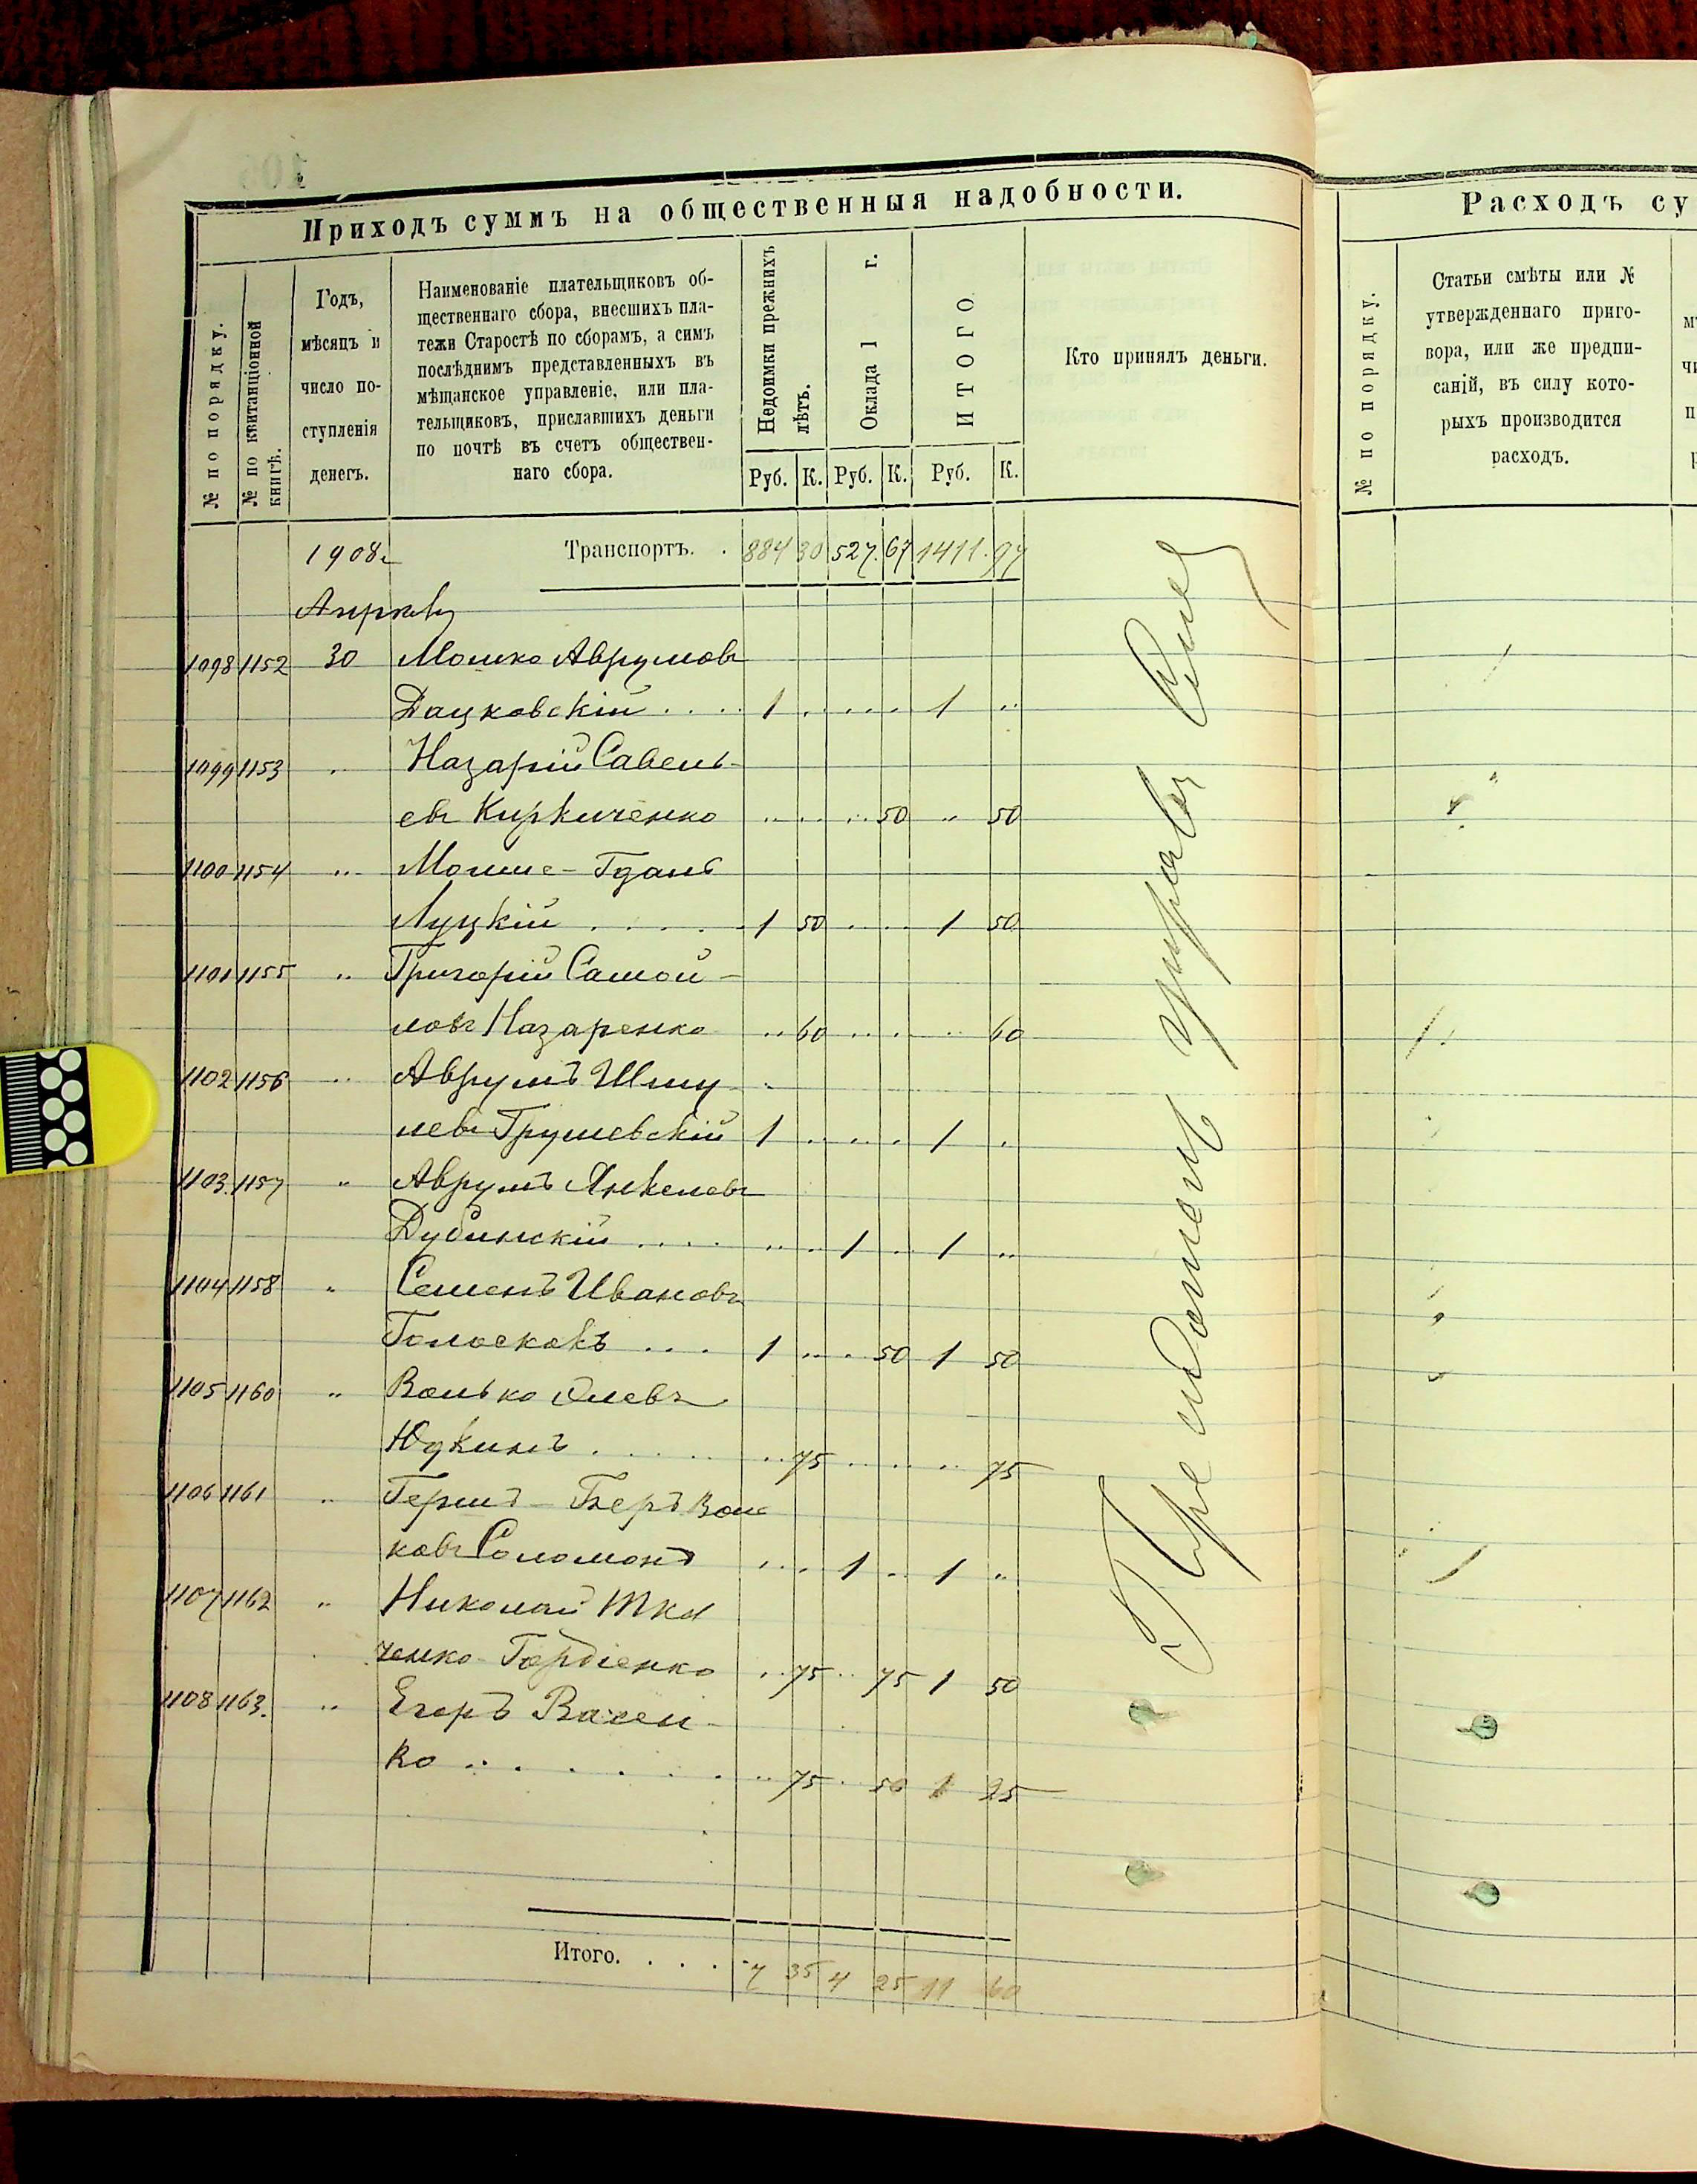 Приходъ суммъ на общественныя надобности.
№ по порядку.
№ по квитанціонной книгѣ.
Годъ,
мѣсяцъ и
число по-
ступленія
денегъ.
Наименованіе плательщиковъ об-
щественнаго сбора, внесшихъ пла-
тежи Старостѣ по сборамъ, а симъ
послѣднимъ представленныхъ въ
мѣщанское управленіе, или пла-
тельщиковъ, приславшихъ деньги
по почтѣ въ счетъ обществен-
наго сбора.
Недоимки прежнихъ
лѣтъ.
Оклада 1 г.
ИТОГО
Кто принялъ деньги.
Руб. К. Руб. К. Руб. К.
1908 г Транспортъ. . 884 30 527. 67 1411. 97
Апрѣль
1098 1152 30 Мошко Аврумовъ
Дацковскій . . . . 1 . . . . . 1 ..
1099 1153 .. Назарій Савель-
евъ Кириченко .. . . . .. 50 .. 50
1100 1154 .. Мошко-
Луцкій . . . . . 1 50 . . . . 1 50
1101 1155 .. Григорій Самой-
ловъ Назаренко .. 60 .. . . .. 60
1102 1156 .. Аврумъ Шму-
левъ Грушевскій 1 . . . . . 1 .
1103. 1157 .. Аврумъ Янкелевъ
Дубинскій . . . . .. . 1 .. 1 ..
1104 1158 .. Семенъ Ивановъ
Голосковъ . . . 1 .. . 50 1 50
1105 1160 .. Волько
Юдкинъ . . . . .. 75 . . . .. 75
1106 1161 .. Гершъ-Беръ Воль
ковъ Соломонъ . . . 1 .. 1 ..
1107 1162 .. Николай Тка
ченко-Гордіенко .. 75 .. 75 1 50
1108 1163. .. Егоръ
ко . . . . . . . .. 75 . 50 1 25
Итого. . . . . 7 35 4 25 11 60
Расходъ су
№ по порядку.
Статьи смѣты или №
утвержденнаго приго-
вора, или же предпи-
саній, въ силу кото-
рыхъ производится
расходъ.